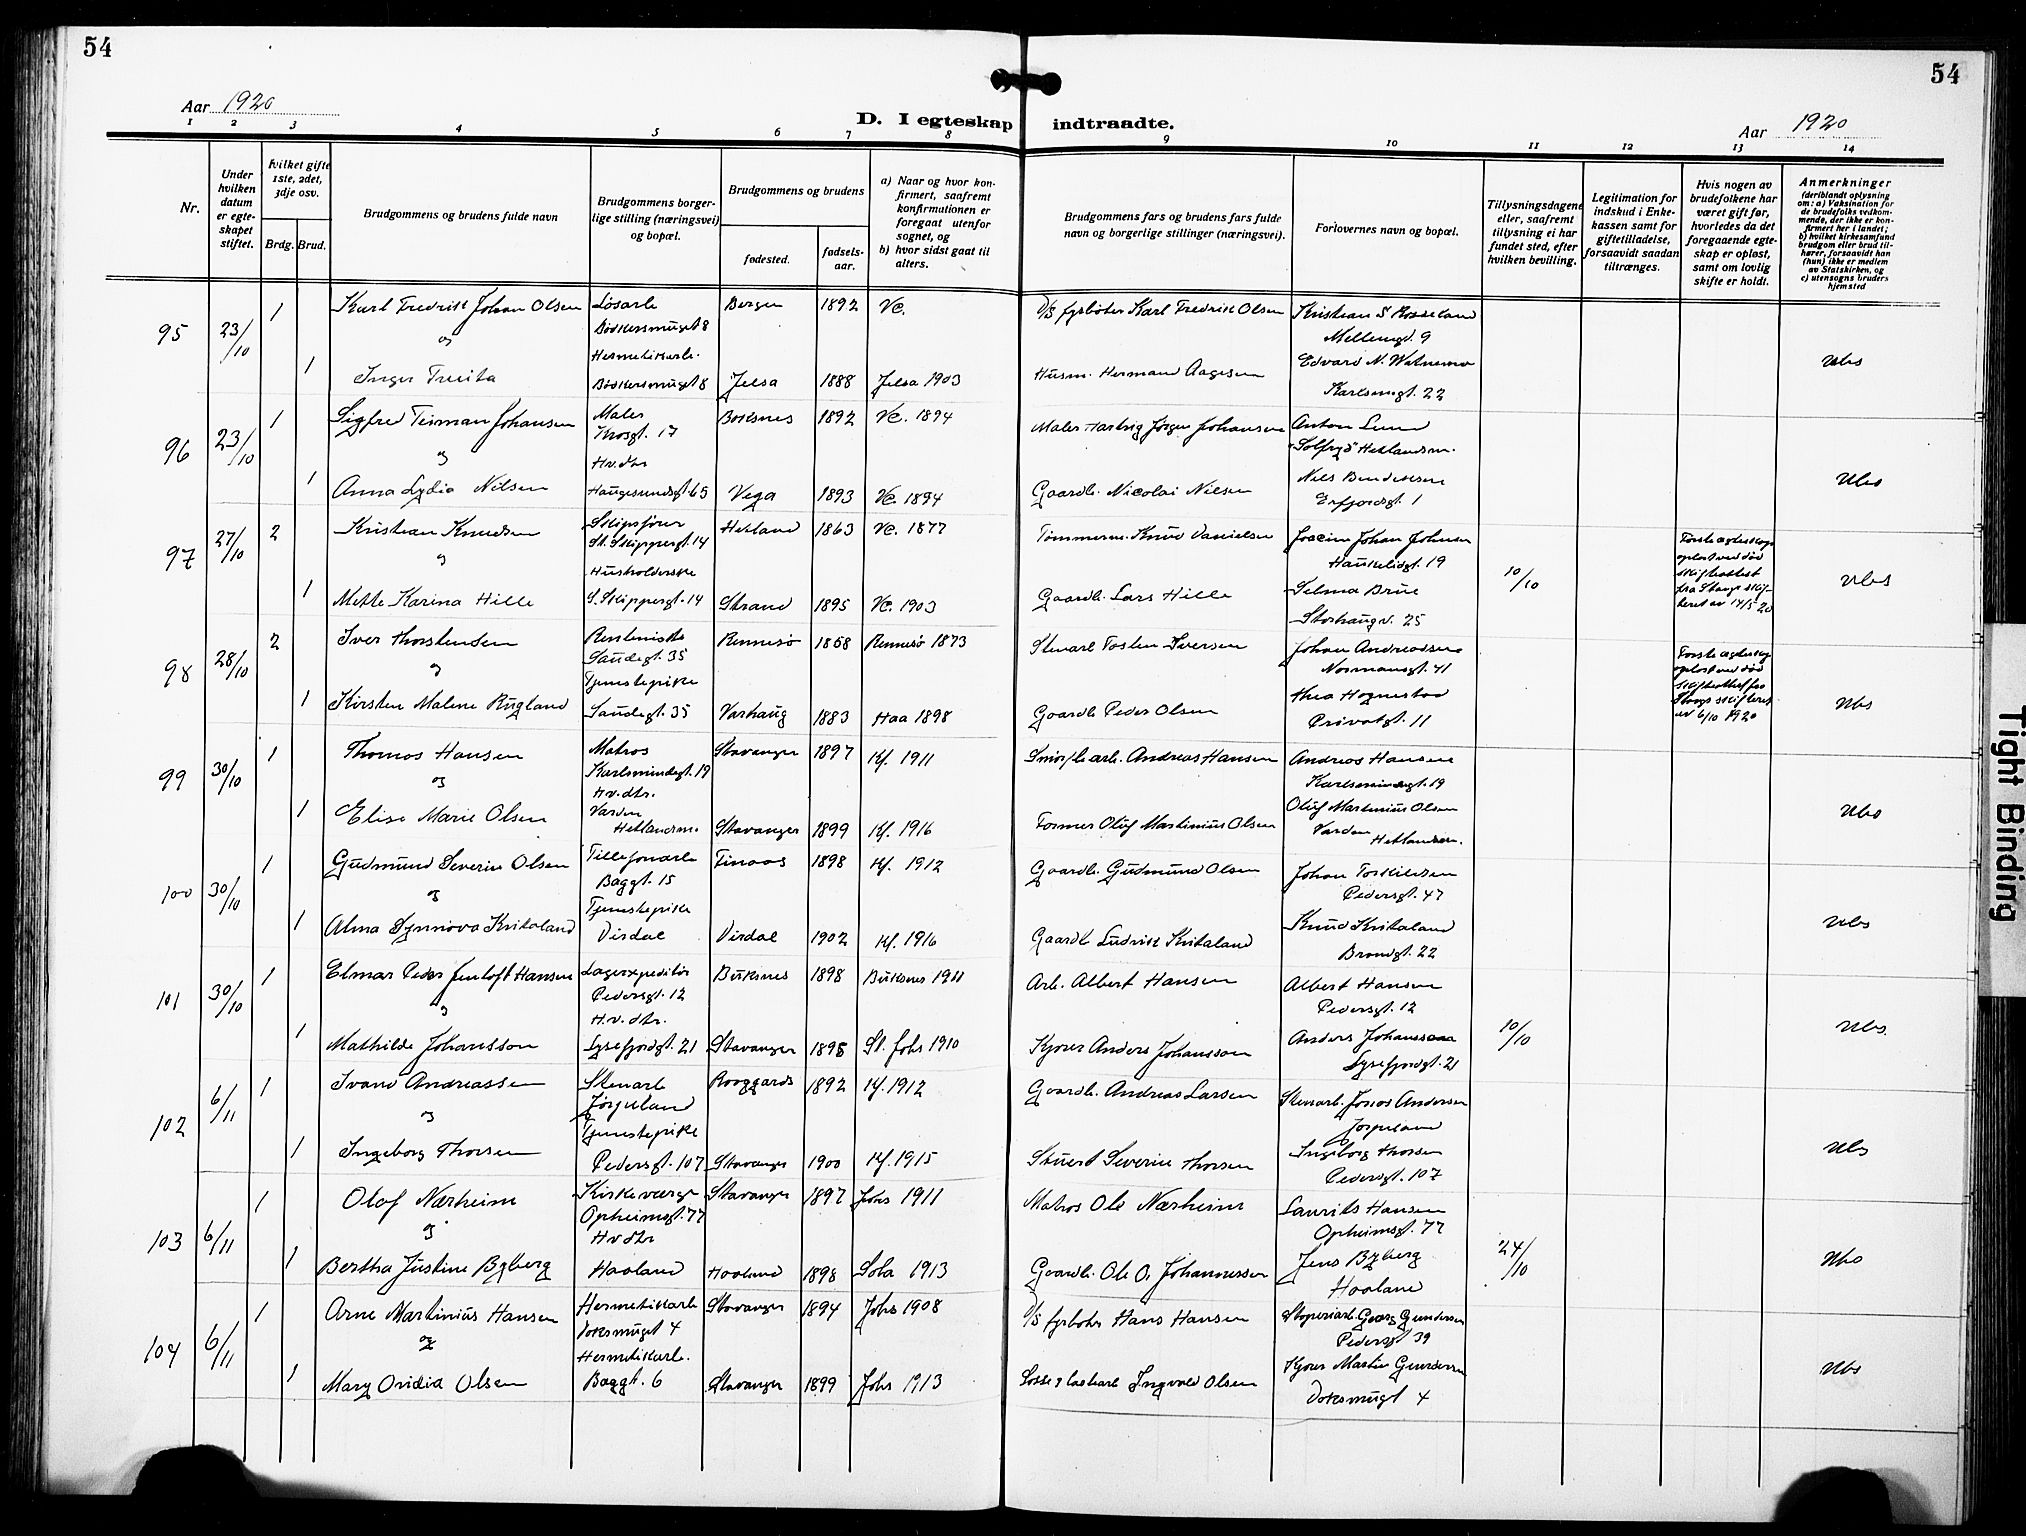 54
54
Aar 1920
D. I egteskap indtraadte.
Aar 1920
1 2 3 4 5 6 7 8 9 10 11 12 13 14
Nr.
Under hvilken datum er egteskapet stiftet.
hvilket gifte 1ste, 2det, 3dje osv.
Brdg. Brud.
Brudgommens og brudens fulde navn
Brudgommens borgerlige stilling (næringsvei) og bopæl.
Brudgommens og brudens
fødested.
fødselsaar.
a) Naar og hvor konfirmert, saafremt konfirmationen er foregaat utenfor sognet, og
b) hvor sidst gaat til alters.
Brudgommens fars og brudens fars fulde navn og borgerlige stillinger (næringsvei).
Forlovernes navn og bopæl.
Tillysningsdagene eller, saafremt tillysning ei har fundet sted, efter hvilken bevilling.
Legitimation for indskud i Enkekassen samt for giftetilladelse, forsaavidt saadan tiltrænges.
Hvis nogen av brudefolkene har været gift før, hvorledes da det foregaaende egteskap er opløst, samt om lovlig skifte er holdt.
Anmerkninger
(deriblandt oplysning om: a) Vaksination for de brudefolks vedkommende, der ikke er konfirmert her i landet; b) hvilket kirkesamfund brudgom eller brud tilhører, forsaavidt han (hun) ikke er medlem av Statskirken, og c) utensogns bruders hjemsted
95 23/10 1 Karl Fredrik Johan Olsen Løsarb. Bergen 1892 D/S fyrbøter Karl Fredrik Olsen
og Bøskersmuget 8 Mellemgt. 9
Hermetikarb. Edvard N.
1 Inger Bøskersmuget 8 Jelsa 1888 Jelsa 1903 Husm. Herman Aagesen Karlsmgt. 22
96 23/10 1 Sigfred Johansen Maler 1892 1894 Maler Hartvig Jørgen Johansen Anton Lund
Krosgt. 17 "Solfryd" Hetlandsm.
og Hv. dtr Niels
1 Anna Lydia Nilsen Haugesundsgt. 65 Vega 1893 1894 Gaardb. Nicolai Nilsen Erfjordsgt. 1
97 27/10 2 Kristian Knudsen Skipsfører Hetland 1863 1877 Tømmerm. Knud Danielsen Joacim Johan Johnsen
St. Skippergt. 14 Haukeligt. 19
og Husholderske Selma Brue
1 Mette Karina Hille S. Skippergt. 14 Strand 1895 1903 Gaardb. Lars Hille Storhaugv. 25 10/10
Første egteskap opløst ved død skifteattest fra Stavgr skifteret av 14/5 20
98 28/10 2 Iver Thorstensen Rentenist Rennesø 1858 Rennesø 1873 Stenarb. Tosten Iversen Johan Andreassen
Saudegt. 35 Normansgt. 41
og Tjenestepike Thea Hognestad
1 Kirsten Malene Rugland Saudegt. 35 Varhaug 1883 Haa 1898 Gaardb. Peder Olsen Privatgt. 11
Første egteskap opløst ved død skifteattest fra Stavgr skifteret av 6/10 1920
99 30/10 1 Thomas Hansen Matros Stavanger 1897 Kf. 1911 Andreas Hansen Andreas Hansen
Karlsmindegt. 19 Karlsmindegt. 19
og Hv. dtr. Oluf Martinius Olsen
1 Elise Marie Olsen Varden Hetlandsm. Stavanger 1899 Kf. 1916 Former Oluf Martinius Olsen Varden Hetlandsm.
100 30/10 1 Gudmund Severin Olsen Finaas 1898 Kf. 1912 Gaardb. Gudmund Olsen Johan Torkildsen
Baggt. 15 Pedersgt. 47
og Tjenestepike Knud Krikaland
1 Alma Synnøva Krikaland Dirdal Dirdal 1902 Kf. 1916 Gaardb. Ludvik Krikaland Brandgt. 22
101 30/10 1 Elmar Peder Hansen Lagerxpeditør Buksnes 1898 Buksnes 1911 Arb. Albert Hansen Albert Hansen
Pedersgt. 12 Pedersgt. 12
og H. v. dtr. Anders Johansson
1 Mathilde Johansson Lysefjordgt. 21 Stavanger 1895 St. Johs 1910 Kjører Anders Johansson Lysefjordgt. 21 10/10
102 6/11 1 Ivand Andreassen Stenarb. 1892 Kf. 1912 Gaardb. Andreas Larsen Stenarb. Jonas Andersen
Jørpeland Jørpeland
og Tjenestepike Ingeborg Thorsen
1 Ingeborg Thorsen Pedersgt. 107 Stavanger 1900 Kf. 1915 Stuert Severin Thorsen Pedersgt. 107
103 6/11 1 Olaf Nærheim Kirkeværge Stavanger 1897 Johs 1911 Matros Ole Nærheim Laurits Hansen
Opheimsgt. 77 Opheimsgt. 77
og Hv dtr Jens Byberg
1 Bertha Justine Byberg Haaland Haaland 1898 Sola 1913 Gaardb. Ole O. Johannessen Haaland 24/10
104 6/11 1 Arne Martinius Hansen Hermetikarb Stavanger 1894 Johs 1908 D/S fyrbøter Hans Hansen Georg Gundersen
Doksmuget 4 Pedersgt 39
og Hermetikarb. Kjører Martin Gundersen
1 Mary Ovidia Olsen Baggt. 6 Stavanger 1899 Johs 1913 Losse & lastearb Ingvald Olsen Doksmugt 4
Tight Binding